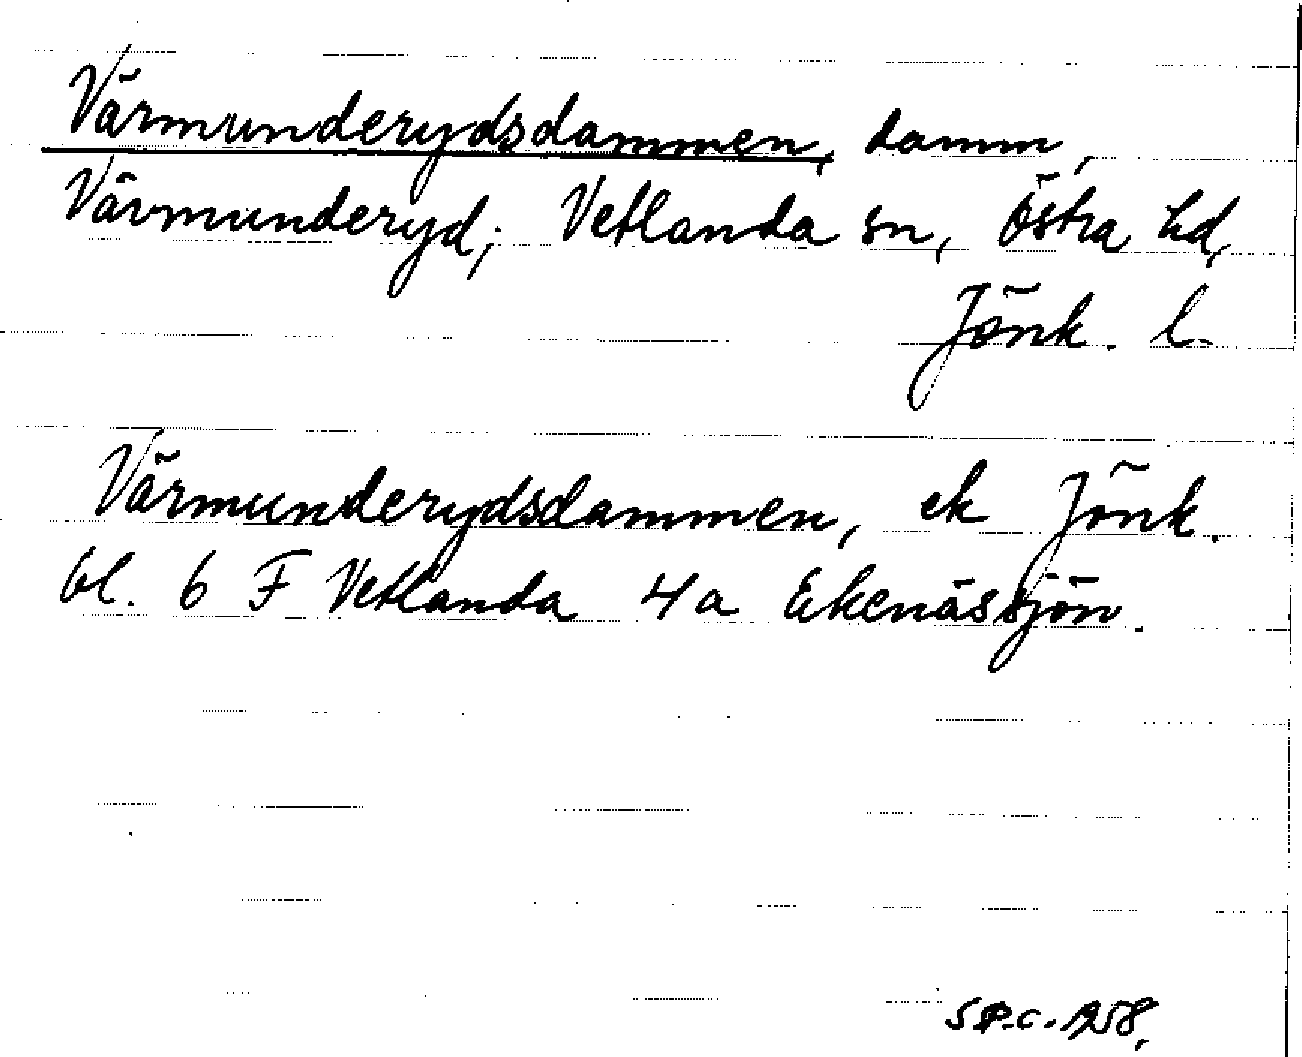 Värmunderydsdammen, damm,
Värmunderyd; Vetlanda sn, Östra hd,
Jönk. l.
Värmunderydsdammen, ek Jönk.
bl. 6 F Vetlanda 4a Ekenässjön.
1958.